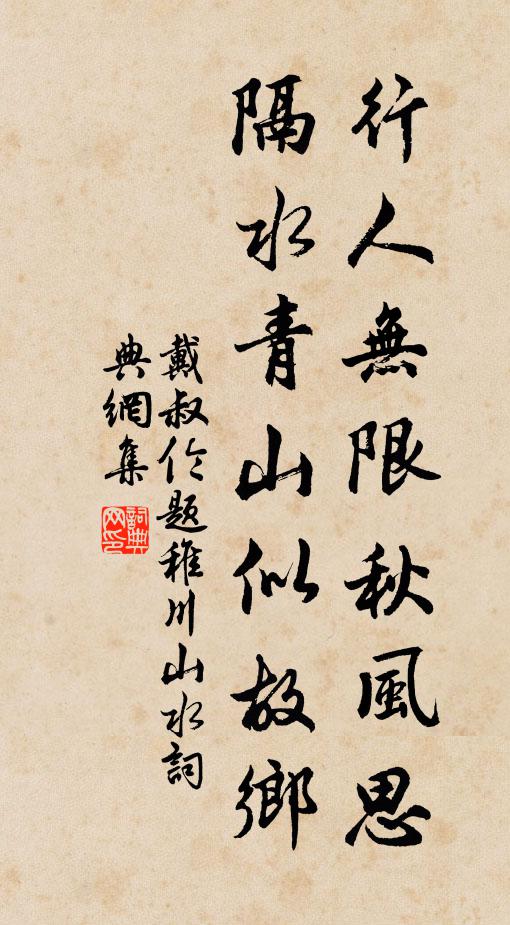 行人無限秋風思
隔水青山似故鄉
戴叔倫題稚川山水詞
典網集
詞典
网印